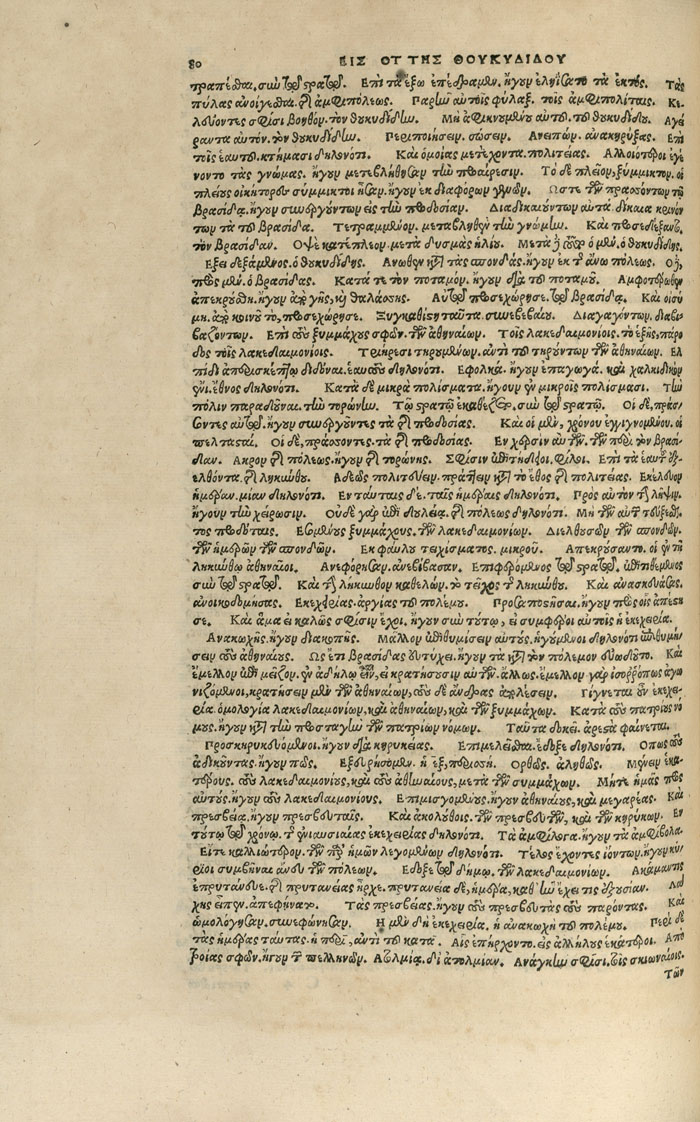 80 ΕΙΣ ΟΤ ΤΗΣ ΘΟΥΚΥΔΙΔΟΥ
τραπέσθαι. σὺν τῷ στρατῷ. Επὶ τὰ ἔξω ἐπέδραμεν. ἤγουν ἐληΐσατο τὰ ἐκτός. Τὰς
πύλας ἀνοίγεσθαι. τῆς ἀμφιπόλεως. Παρὼν αὐτοῖς φύλαξ. τοῖς ἀμφιπολίταις. Κε
λεύοντες σφίσι βοηθεῖν. τὸν θουκυδίδην. Μὴ ἀφικνουμένου αὐτοῦ. τοῦ θουκυδίδου. Αγεί
ραντα αὐτόν. τὸν θουκυδίδην. Περιποιήσειν. σώσειν. Ανεῖπεν. ἀνακηρύξας. Επὶ
τοῖς ἑαυτοῦ. κτήμασι δηλονότι. Καὶ ὁμοίας μετέχοντα. πολιτείας. Αλλοιότεροι ἐγέ
νοντο τὰς γνώμας. ἤγουν μετεβλήθησαν τὴν προαίρεσιν. Τὸ δὲ πλεῖον, ξύμμικτον. οἱ
πλείους οἰκήτορες σύμμικτοι ἦσαν. ἤγουν ἐκ διαφόρων γενῶν. Ωστε τῶν πρασσόντων τῷ
βρασίδᾳ. ἤγουν συνεργούντων εἰς τὴν προδοσίαν. Διαδικαιούντων αὐτά. δίκαια κρινόν
των τὰ τοῦ βρασίδα. Τετραμμένον. μεταβληθὲν τὴν γνώμην. Καὶ προσεδέξαντο.
τὸν βρασίδαν. Οψὲ κατέπλεον. μετὰ δυσμὰς ἡλίου. ὁ θουκυδίδης.
Εξεδεξάμενος. ὁ θουκυδίδης. Ανωθεν κατὰ τὰς σπονδάς. ἤγουν ἐκ τῆς ἄνω πόλεως.
ὁ βρασίδας. Κατά τε τὸν ποταμόν. ἤγουν διὰ τοῦ ποταμοῦ. Αμφοτέρωθεν
ἀπεκρούσθη. ἤγουν ἀπὸ γῆς, καὶ θαλάσσης. Αὐτῷ προσεχώρησε. τῷ βρασίδᾳ. Καὶ οἰσύ
μη. ἀπὸ κοινοῦ τό, προσεχώρησε. Ξυγκαθίστη ταῦτα. συνεβεβαίου. Διαγαγόντων. διαβι
βαζόντων. Επὶ τοὺς ξυμμάχους σφῶν. τῶν ἀθηναίων. Τοῖς λακεδαιμονίοις. τὸ ἑξῆς, πάρο
δος τοῖς λακεδαιμονίοις. Τριήρεσι τηρουμένων. ἀντὶ τοῦ τηρούντων τῶν ἀθηναίων. Ελ
πίδι ἀπερισκέπτῳ διδόναι. ἑαυτοὺς δηλονότι. Εφολκά. ἤγουν ἐπαγωγά. καὶ χαλκιδικὸν
γένος. ἔθνος δηλονότι. Κατὰ δὲ μικρὰ πολίσματα. ἤγουν ἐν μικροῖς πολίσμασι. Τὴν
πόλιν παραδοῦναι. τὴν τορώνην. Τῷ στρατῷ ἐκαθέζετο. σὺν τῷ στρατῷ. Οἱ δὲ, πράσ
σοντες αὐτῷ. ἤγουν συνεργοῦντες τὰ τῆς προδοσίας. Καὶ οἱ μὲν, χρόνου ἐγγιγνομένου. οἱ
πελτασταί. Οἱ δὲ, πράσσοντες. τὰ τῆς προδοσίας. Εν χερσὶν αὐτῶν. τῶν περὶ τὸν βρασί
δαν. Ακρον τῆς πόλεως. ἤγουν τῆς τορώνης. Σφίσιν ἐπιτήδειοι. φίλοι. Επὶ τὰ ἑαυτοῦ ἐξ-
ελθόντα. τῆς ληκύθου. Αδεῶς πολιτεύειν. πράττειν κατὰ τὸ ἔθος τῆς πολιτείας. Εκέλευον
ἡμέραν. μίαν δηλονότι. Εν ταύταις δέ. ταῖς ἡμέραις δηλονότι. Πρὸς αὐτὸν τὴν λῆψιν.
ἤγουν τὴν χείρωσιν. Οὐδὲ γὰρ ἐπὶ δουλείᾳ. τῆς πόλεως δηλονότι.
τος προδόταις. Εσομένους ξυμμάχους. τῶν λακεδαιμονίων. Διελθουσῶν τῶν σπονδῶν.
τῶν ἡμερῶν τῶν σπονδῶν. Εκ φαύλου τειχίσματος. μικροῦ. Απεκρούσαντο. οἱ ἐν τῇ
ληκύθῳ ἀθηναῖοι. Ανεφόρησαν. ἀνεβίβασαν. Επιφερόμενος τῷ στρατῷ. ἐπιτιθέμενος
σὺν τῷ στρατῷ. Καὶ τὴν λήκυθον καθελών. τὸ τεῖχος τῆς ληκύθου. Καὶ ἀνασκευάσας.
ἀνοικοδομήσας. Εκεχειρίας. ἀργίας τοῦ πολέμου. Προσαποστῆσαι. ἤγουν πρὸς οἷς ἀπέστη
σε. Καὶ ἅμα εἰ καλῶς σφίσιν ἔχοι. ἤγουν σὺν τούτῳ, εἰ συμφέροι αὐτοῖς ἡ ἐκεχειρία.
Ανακωχῆς. ἤγουν διακοπῆς. Μᾶλλον ἐπιθυμίσειν αὐτούς. ἡγούμενοι δηλονότι ἐπιθυμή
σειν τοὺς ἀθηναίους. Ως ἔτι βρασίδας εὐτύχει. ἤγουν τὰ κατὰ τὸν πόλεμον εὐωδοῦτο. Καὶ
ἔμελλον ἐπὶ μεῖζον. ἐν ἀδήλῳ ἦν, εἰ κρατήσουσιν αὐτῶν. ἄλλως. ἔμελλον γὰρ ἰσορρόπως ἀγω
νιζόμενοι, κρατήσειν μὲν τῶν ἀθηναίων, τοὺς δὲ ἄνδρας ἀπολέσειν. Γίγνεται ἐν ἐκεχει-
ρίᾳ. ὁμολογία λακεδαιμονίων, καὶ ἀθηναίων, καὶ τῶν ξυμμάχων. Κατὰ τοὺς πατρίους νό
μους. ἤγουν κατὰ τὴν προσταγὴν τῶν πατρίων νόμων. Ταῦτα δοκεῖ. ἀρεστὰ φαίνεται.
Προσκηρυκευόμενοι. ἤγουν διὰ κηρυκείας. Επιμελεῖσθαι. ἔδοξε δηλονότι. Οπως τοὺς
ἀδικοῦντας. ἤγουν πῶς. Εξευρήσομεν. ἡ ἐξ, περισσή. Ορθῶς. ἀληθῶς. Μένειν ἑκα
τέρους. τοὺς λακεδαιμονίους, καὶ τοὺς ἀθηναίους, μετὰ τῶν συμμάχων. Μήτε ἡμᾶς πρὸς
αὐτούς. ἤγουν τοὺς λακεδαιμονίους. Επιμισγομένους. ἤγουν ἀθηναίους, καὶ μεγαρέας. Καὶ
πρεσβείᾳ. ἤγουν πρεσβευταῖς. Καὶ ἀκολούθοις. τῶν πρεσβευτῶν, καὶ τῶν κηρύκων. Εν
τούτῳ τῷ χρόνῳ. τῆς ἐνιαυσιαίας ἐκεχειρίας δηλονότι. Τὰ ἀμφίλογα. ἤγουν τὰ ἀμφίβολα.
Εἴτε καλλιώτερον. τῶν παρ' ἡμῶν λεγομένων δηλονότι. Τέλος ἔχοντες ἰόντων. ἤγουν κύ
ριοι συμβῆναι ἄνευ τῶν πόλεων. Εδοξε τῷ δήμῳ. τῶν λακεδαιμονίων. Ακάμαντις
ἐπρυτάνευε. τῆς πρυτανείας ἦρχε. πρυτανεία δέ, ἡμέρα, καθ' ἣν ἔχει τις ἐξουσίαν. Λά
χης εἶπεν. ἀπεφήνατο. Τὰς πρεσβείας. ἤγουν τοὺς πρεσβευτὰς τοὺς παρόντας. Καὶ
ὡμολόγησαν. συνεφώνησαν. Η μὲν δὴ ἐκεχειρία. ἡ ἀνακωχὴ τοῦ πολέμου. Περὶ δὲ
τὰς ἡμέρας ταύτας. ἡ περὶ, ἀντὶ τοῦ κατά. Αἷς ἐπήρχοντο. εἰς ἀλλήλους ἑκάτεροι. Απο
ροίας σφῶν. ἤγουν τῶν πελληνέων. Ατολμίᾳ. δι' ἀτολμίαν. Ανάγκην σφίσι. τοῖς σκιωναίοις.
Τῶν